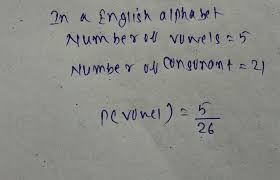 In a English alphabet
Number of vowels = 5
Number of consonant = 21
P(vowel) = 5/26